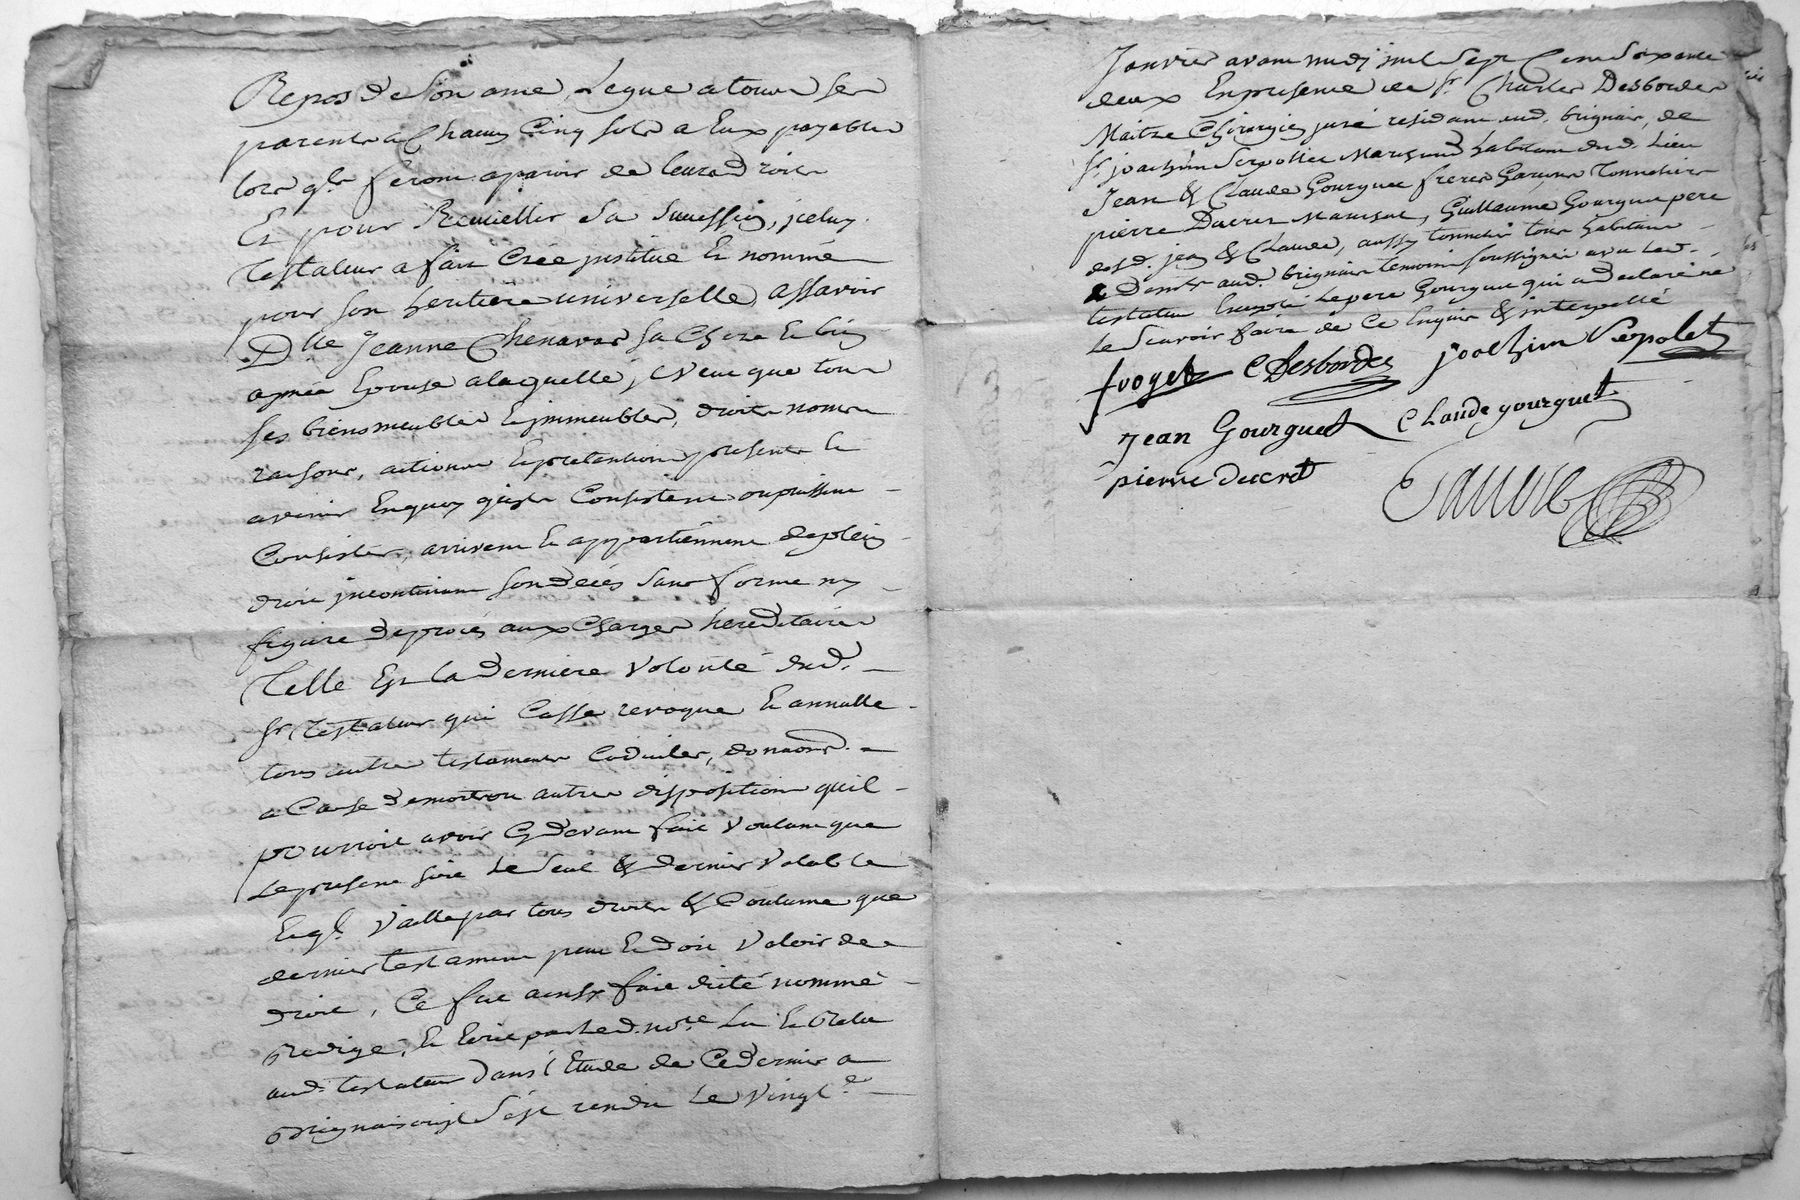 Repos de Son ame, Legue a tous ses
parents a Chacun Cinq sols a Eux payables
lors qls feront aparoir de leurs droits
Et pour Recueillir Sa Succession, jceluy
Testateur a fait Créé jnstitué Et nommé
pour son heritiere universelle, assavoir
Dlle Jeanne Chenavar sa Chere Et bien
aymée Epouse a laquelle, jl veut que tous
ses biens meubles Et jmmeubles, droits noms
raisons, actions Et pretentions presents Et
avenir En quoy qjls Consistent ou puissent
Consister, arrivent Et appartiennent de plein
droit jncontinant son deces Sans forme ny
figure de proces aux Charges hereditaires
Telle Est la derniere Volonté dud.
sr Testateur qui Casse revoque Et annulle
tous autres testaments Codiciles, donaons.
a Cause de mort ou autres dispositions qu'il
pourroit avoir Cy devant fait Voulant que
Le present soit Le Seul & dernier Valable
Et ql. Vaille par tous droits & Coutume que
dernier testament peut Et doit Valoir de
droit, Ce fut ainsy fait dicté nommé
Redigé, Et Ecrit par Led. nore Lu Et Relu
aud. testateur Dans l'Etude de Ce dernier a
Brignais ou jl S'est rendu Le Vingt
Janvier avant midy mil Sept Cent Soixante
deux En presence de sr. Charles Desbordes
Maitre Chirurgien juré residant aud. brignais, de
sr. joachim Serpollet Marchand habitant dud. Lieu
Jean & Claude Gourguet freres Garçons Tonneliers
pierre Ducret Marechal, Guillaume Gourguet pere
desd. jean & Claude, aussy tonnelier tous habitans
aud. brignais temoins soussignés avec Led.
testateur Excepté Le pere Gourguet qui a declaré ne
Le Scavoir faire de Ce Enquis & interpellé
froget C Desbordes joachim Serpolet
Jean Gourguet Claude gourguet
pierre ducret